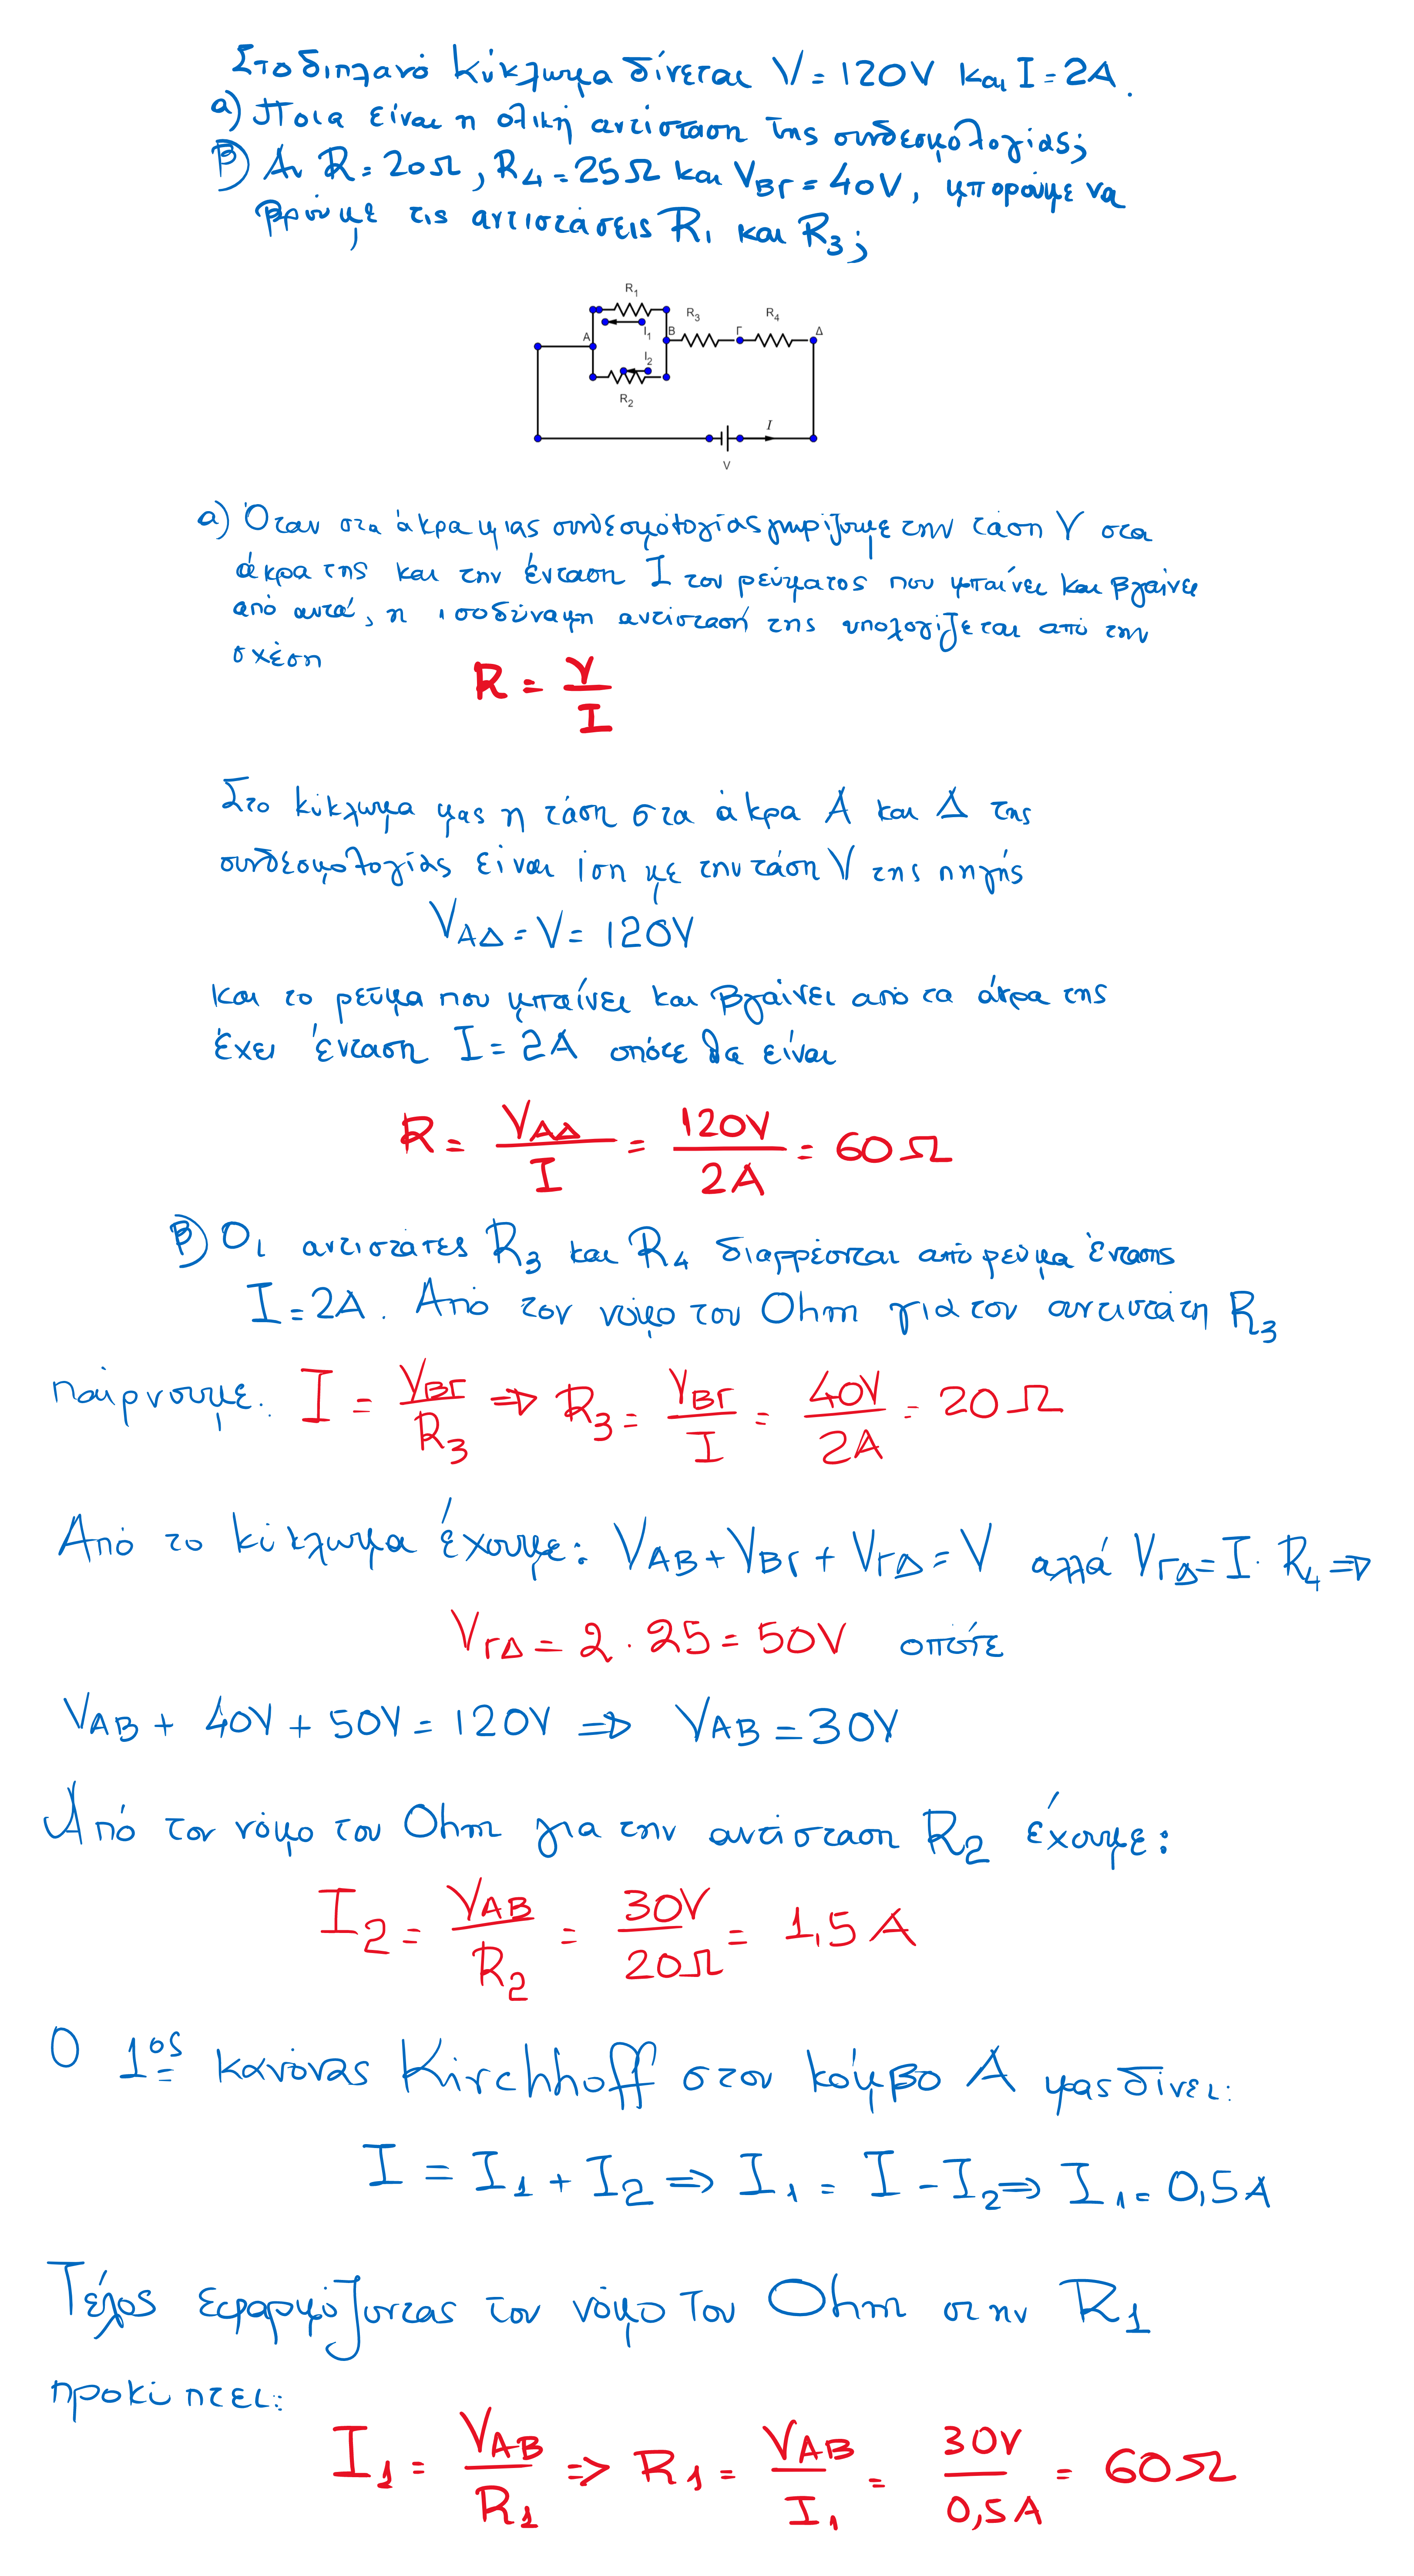 Στο διπλανό κύκλωμα δίνεται V = 120V και I = 2A.
α) Ποια είναι η ολική αντίσταση της συνδεσμολογίας;
β) Αν R = 20Ω, R4 = 25Ω και VΒΓ = 40V, μπορούμε να
βρούμε τις αντιστάσεις R1 και R3;
R1
R3
R4
A
I1
B
Γ
Δ
I2
R2
I
V
α) Όταν στα άκρα μιας συνδεσμολογίας γνωρίζουμε την τάση V στα
άκρα της και την ένταση I του ρεύματος που μπαίνει και βγαίνει
από αυτά, η ισοδύναμη αντίστασή της υπολογίζεται από την
σχέση
R = V / I
Στο κύκλωμα μας η τάση στα άκρα Α και Δ της
συνδεσμολογίας είναι ίση με την τάση V της πηγής
VΑΔ = V = 120V
και το ρεύμα που μπαίνει και βγαίνει από τα άκρα της
έχει ένταση I = 2A οπότε θα είναι
R = VΑΔ / I = 120V / 2A = 60Ω
β) Οι αντιστάτες R3 και R4 διαρρέονται από ρεύμα έντασης
I = 2A. Από τον νόμο του Ohm για τον αντιστάτη R3
παίρνουμε. I = VΒΓ / R3 ⇒ R3 = VΒΓ / I = 40V / 2A = 20Ω
Από το κύκλωμα έχουμε: VΑΒ + VΒΓ + VΓΔ = V αλλά VΓΔ = I · R4 ⇒
VΓΔ = 2 . 25 = 50V οπότε
VΑΒ + 40V + 50V = 120V ⇒ VΑΒ = 30V
Από τον νόμο του Ohm για την αντίσταση R2 έχουμε:
I2 = VΑΒ / R2 = 30V / 20Ω = 1,5 A
Ο 1ος κανόνας Kirchhoff στον κόμβο Α μας δίνει:
I = I1 + I2 ⇒ I1 = I - I2 ⇒ I1 = 0,5 A
Τέλος εφαρμόζοντας τον νόμο του Ohm στην R1
προκύπτει:
I1 = VΑΒ / R1 ⇒ R1 = VΑΒ / I1 = 30V / 0,5A = 60Ω